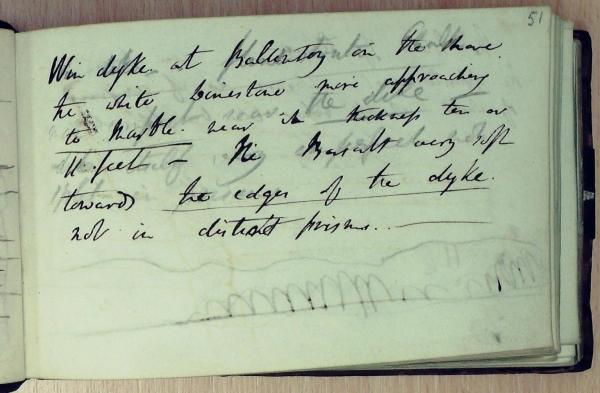 51
Win dyke at Ballintoy on the shore
the white limestone more approaching
to Marble near it thickness ten or
11 feet – The Basalt very soft
towards the edges of the dyke.
not in distinct prisms. —